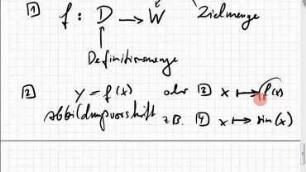 1 f : D → W Zielmenge
↑
Definitionsmenge
2 y = f(x) oder 3 x ↦ f(x)
Abbildungsvorschrift z.B. 4 x ↦ sin(x)